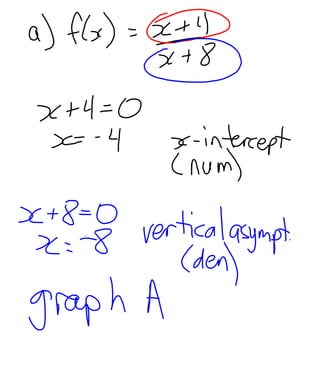 a) f(x) = x+4
x+8
x+4=0
x=-4
x-intercept
(num)
x+8=0
x=-8
vertical asympt.
(den)
graph A